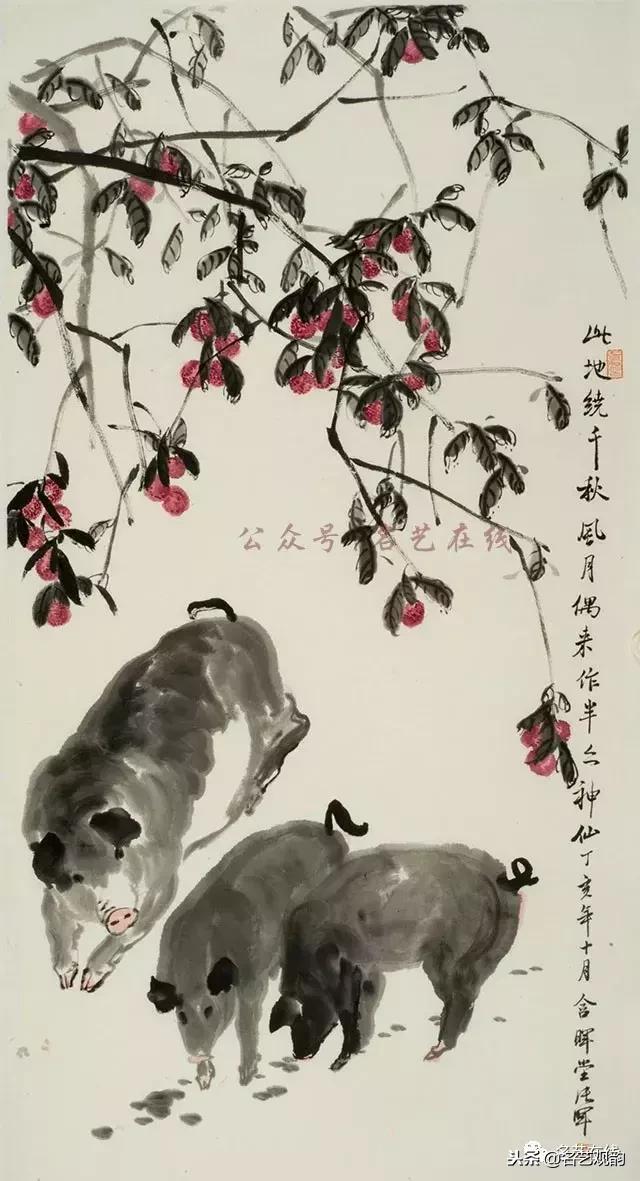 此地绕千秋风月偶来作半个神仙丁亥年十月含晖堂
公众号 名艺在线
名艺在线
头条@名艺观韵